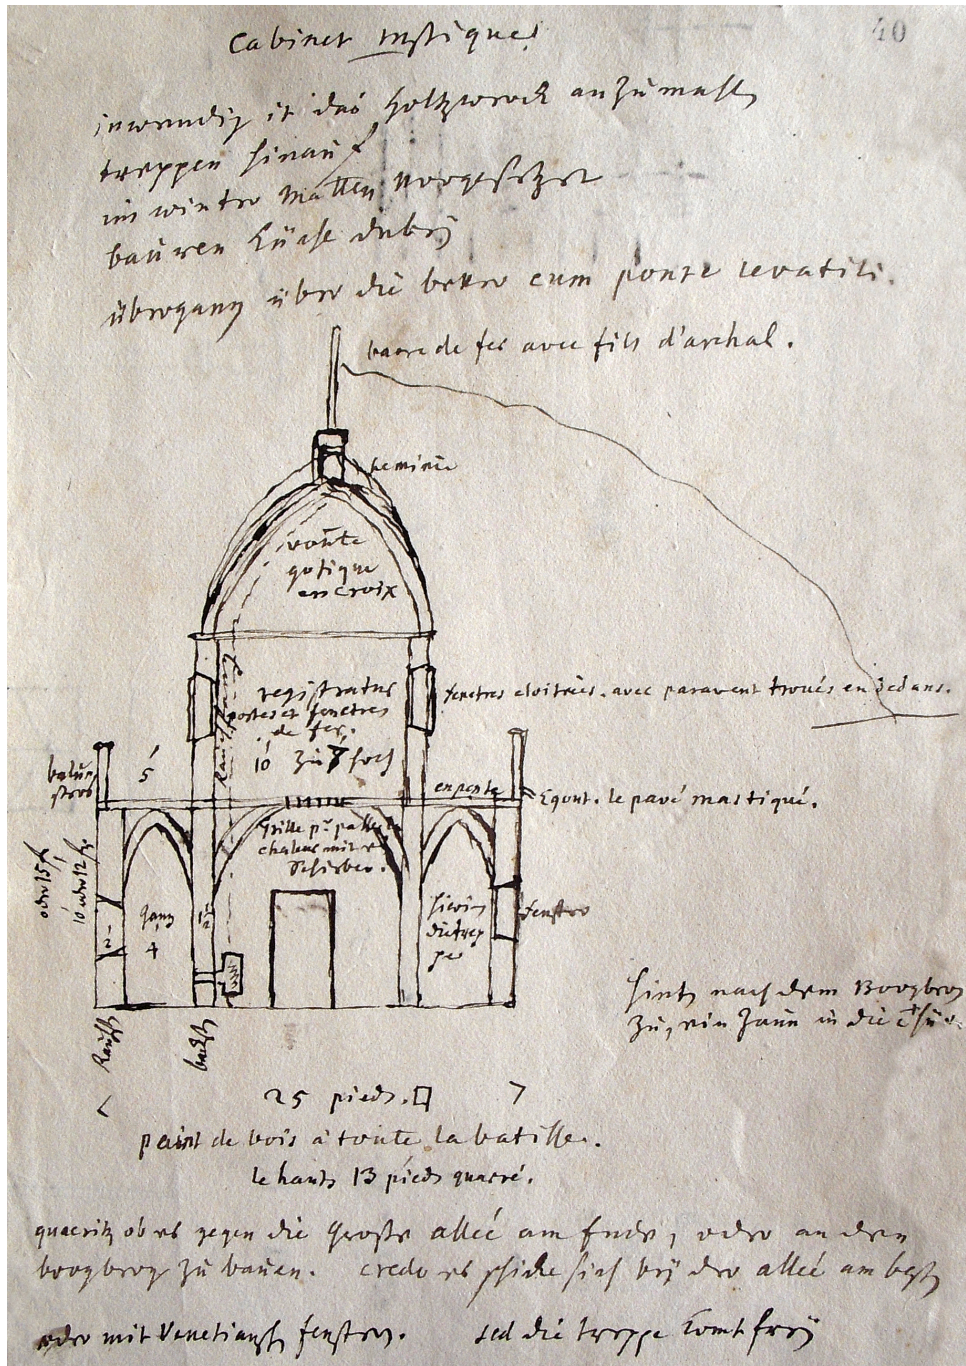 Cabinet mstique
40
inwendig it das holtzwerck anzumahlen
treppen hinauf
im winter matten vorgesetzet
bauren Küche dabey
übergang über die beke cum ponte levatili.
barre de fer avec fils d'archal.
cheminée
voute
gotique
en croix
registratur
portes et fenetres
de fer.
10 zu hoch
fenetres cloitrées. avec paravent troués en dedans.
balustres
5
en pente
Egout. le pavé mastiqué.
Grille pr
chaleur mit
Schieber.
oder 15 f
10 oder 12 f
gang
4
2
1½
hierin
die trep
pe
fenster
nach dem
zu, ein Zaun in die
25 pieds. □
point de bois à toute la batisse.
le haut 13 pieds quarré.
quaeritur ob es gegen die große allée am Ende, oder an den
zu bauen. credo es schicke sich bey der allée am besten
oder mit Venetiansch fenstern. sed die treppe komt frey